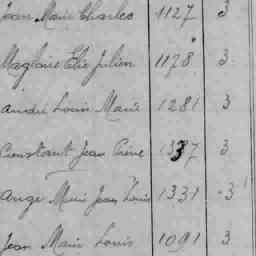 Jean Marie Charles 1127 3
Magloire Elie Julien 1178 3
André Louis Marie 1281 3
Constant Jean Pierre 1337 3
Ange Marie Jean Louis 1331 3
Jean Marie Louis 1091 3